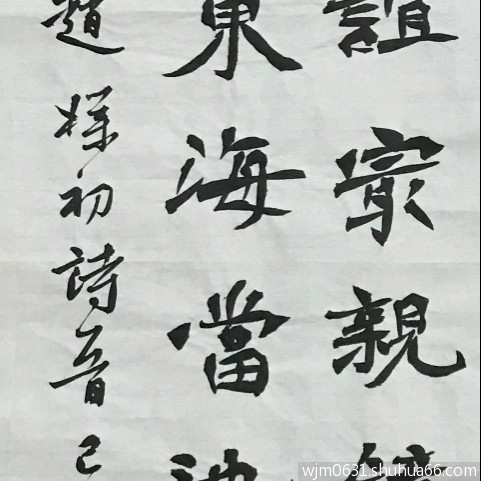 誼家親
東海當池
趙樸初詩音己
wjm0631.shuhua66.com